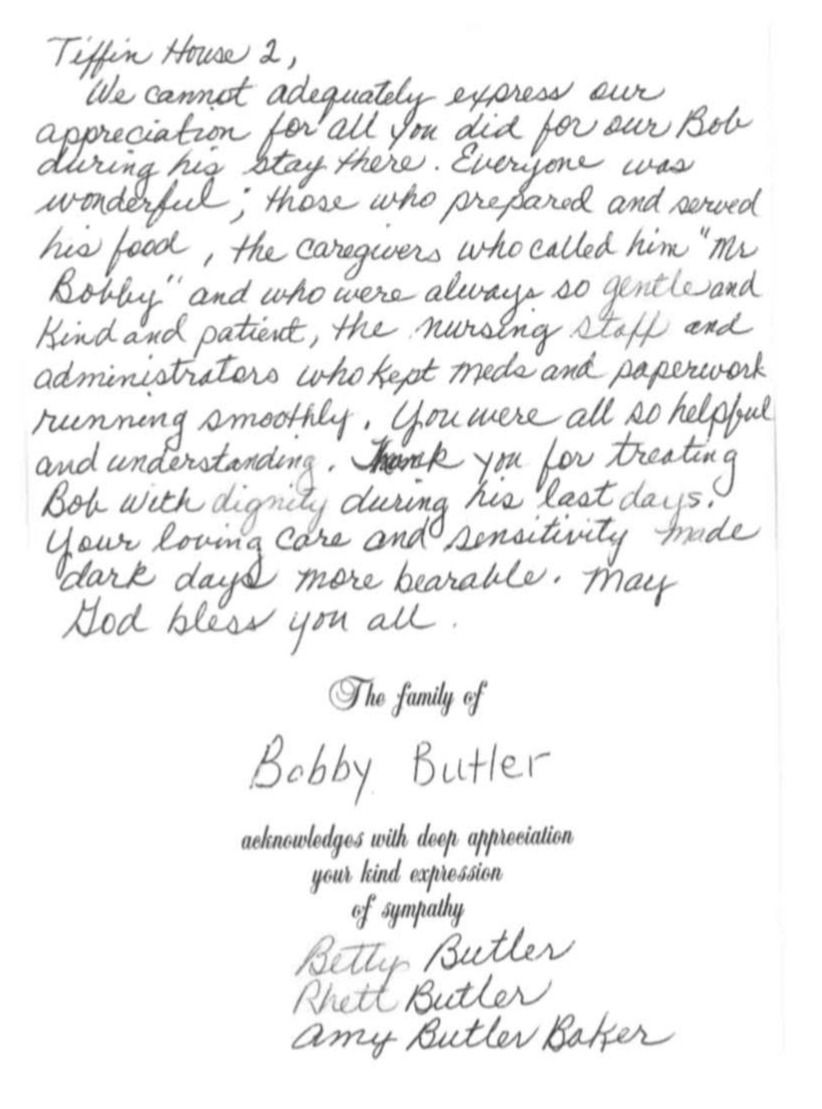 Tiffin House 2,
We cannot adequately express our
appreciation for all you did for our Bob
during his stay there. Everyone was
wonderful; those who prepared and served
his food, the caregivers who called him "Mr
Bobby" and who were always so gentle and
kind and patient, the nursing staff and
administrators who kept meds and paperwork
running smoothly. You were all so helpful
and understanding. Thank you for treating
Bob with dignity during his last days.
Your loving care and sensitivity made
dark days more bearable. May
God bless you all.
The family of
Bobby Butler
acknowledges with deep appreciation
your kind expression
of sympathy
Betty Butler
Rhett Butler
Amy Butler Baker